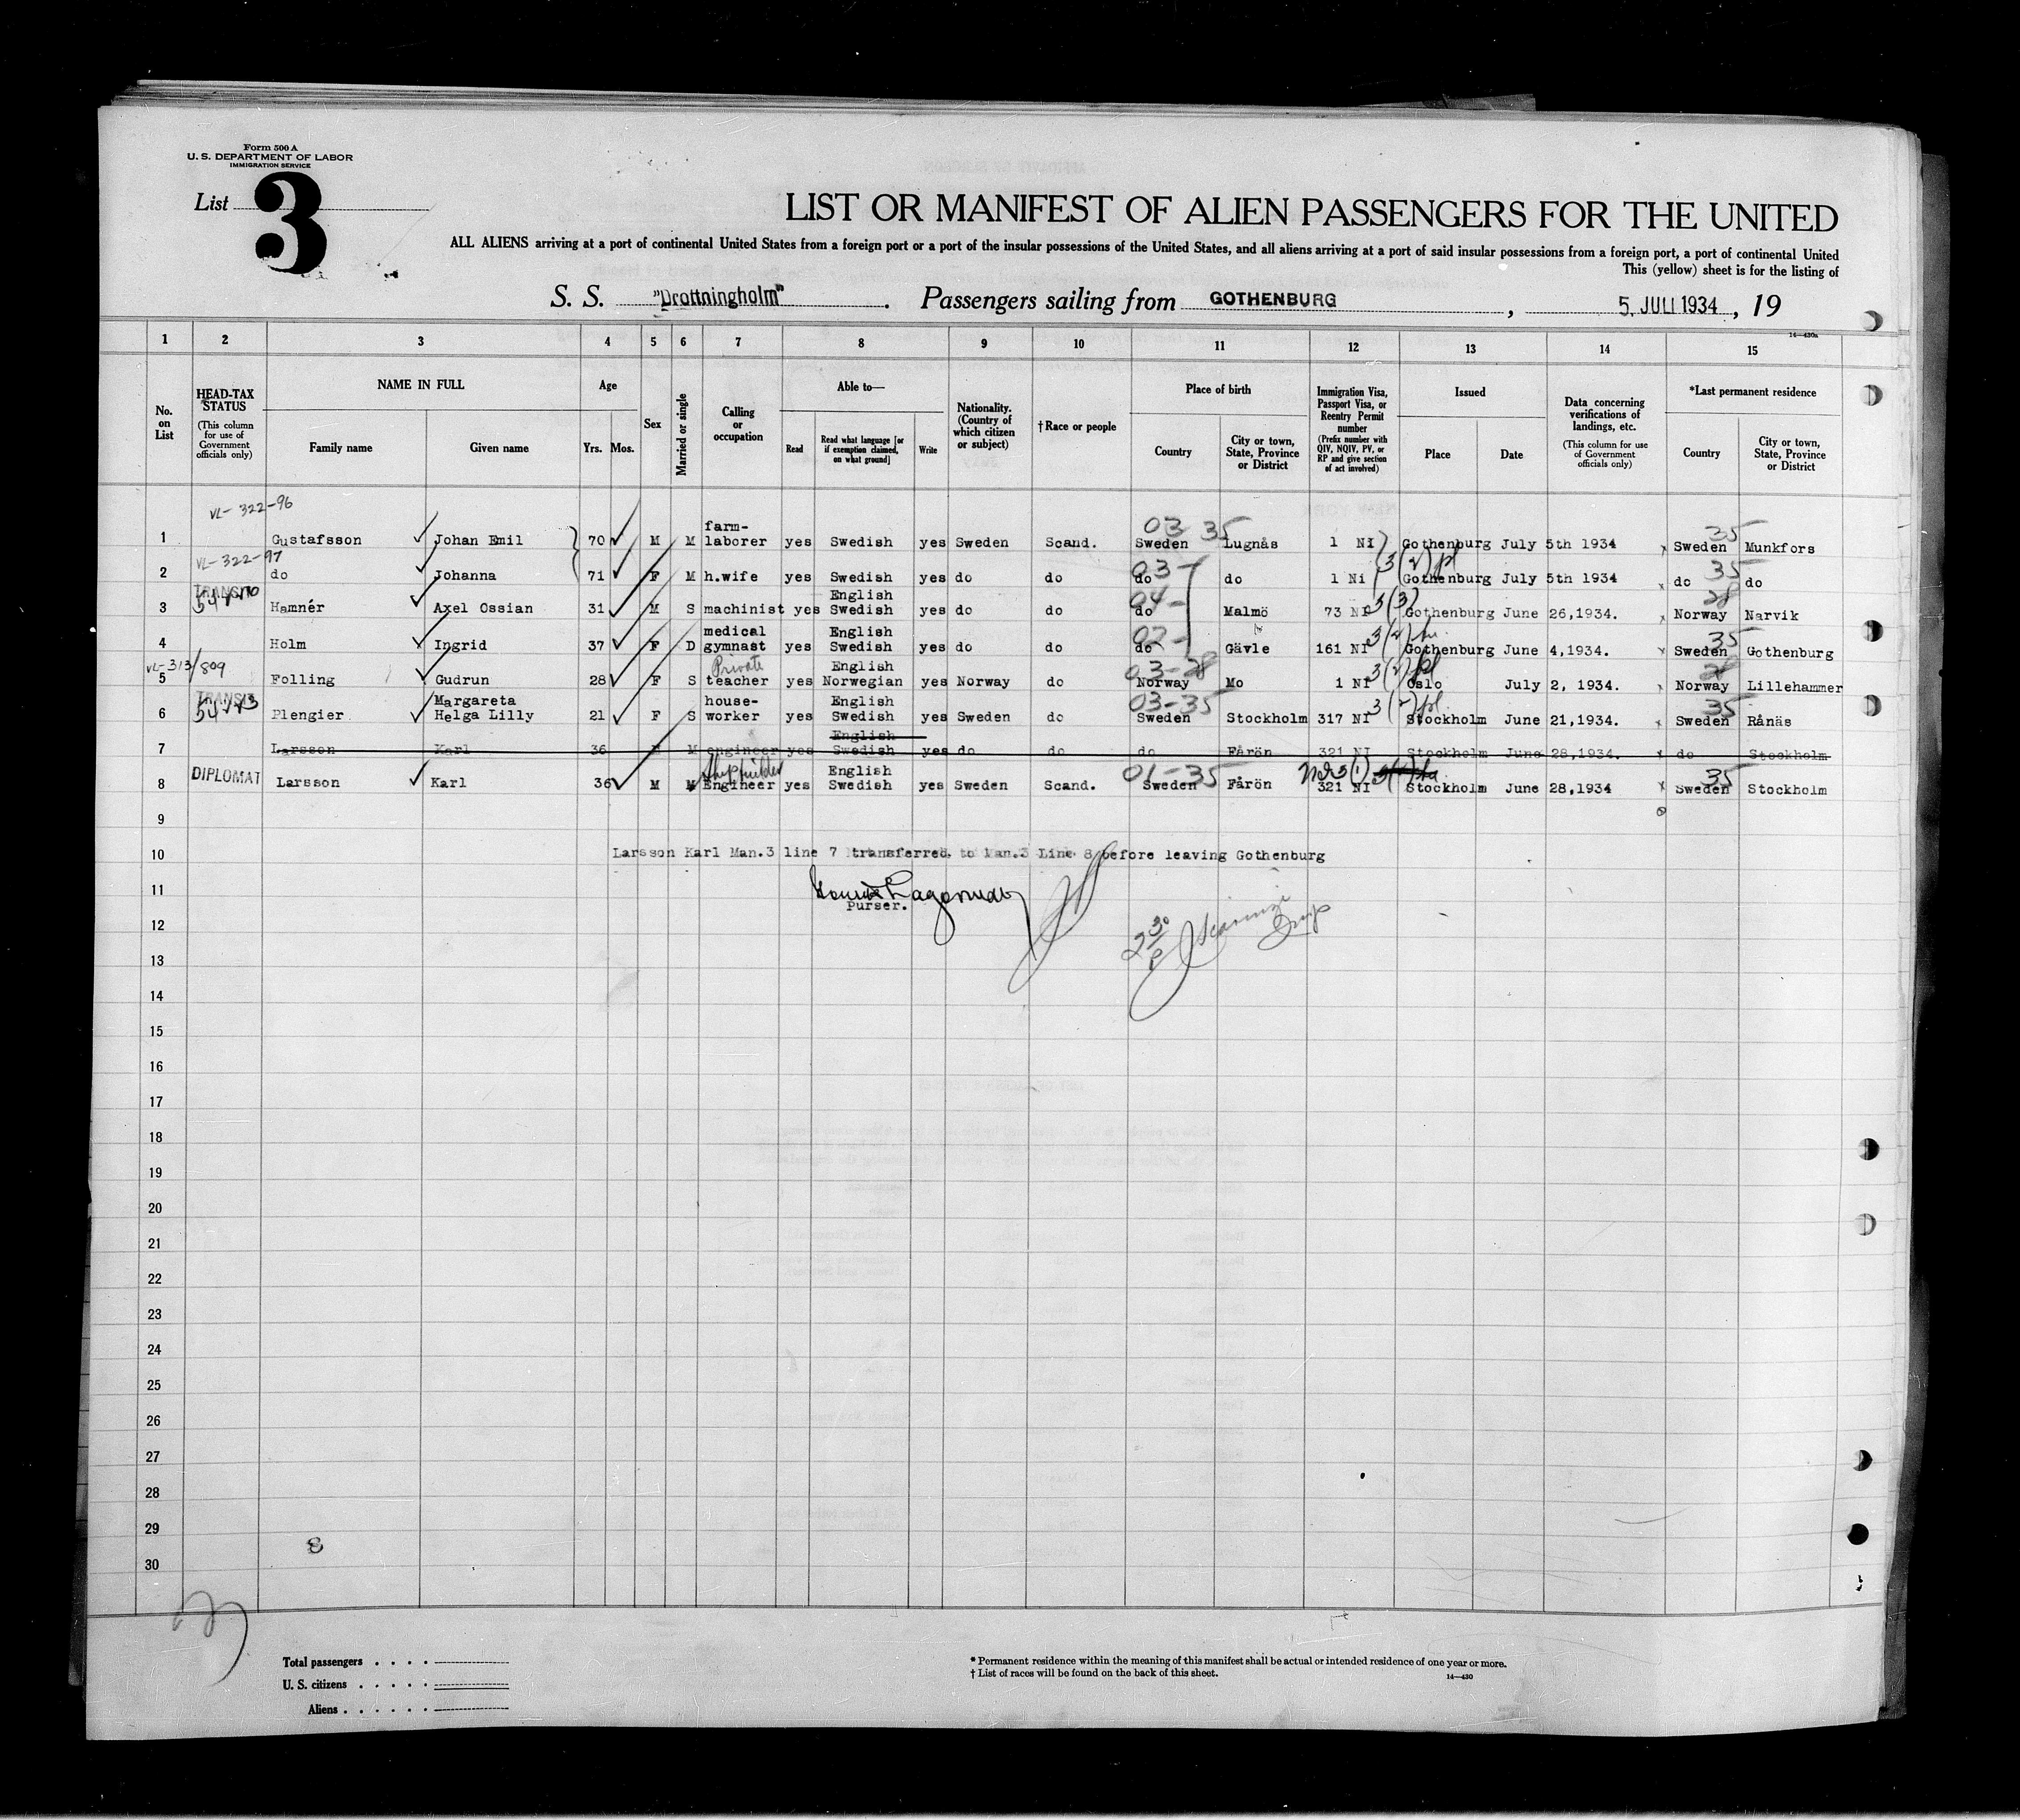 Form 500 A
U. S. DEPARTMENT OF LABOR
IMMIGRATION SERVICE
List 3
LIST OR MANIFEST OF ALIEN PASSENGERS FOR THE UNITED
ALL ALIENS arriving at a port of continental United States from a foreign port or a port of the insular possessions of the United States, and all aliens arriving at a port of said insular possessions from a foreign port, a port of continental United
This (yellow) sheet is for the listing of
S. S. "Drottningholm". Passengers sailing from GOTHENBURG, 5. JULI 1934, 19
14—430a
1 2 3 4 5 6 7 8 9 10 11 12 13 14 15
No. on List
HEAD-TAX STATUS (This column for use of Government officials only)
NAME IN FULL
Family name Given name
Age
Yrs. Mos.
Sex
Married or single
Calling or occupation
Able to—
Read Read what language [or if exemption claimed, on what ground] Write
Nationality. (Country of which citizen or subject)
†Race or people
Place of birth
Country City or town, State, Province or District
Immigration Visa, Passport Visa, or Reentry Permit number (Prefix number with QIV, NQIV, PV, or RP and give section of act involved)
Issued
Place Date
Data concerning verifications of landings, etc. (This column for use of Government officials only)
*Last permanent residence
Country City or town, State, Province or District
VL-322-96
farm- 03 35 35
1 Gustafsson Johan Emil 70 M M laborer yes Swedish yes Sweden Scand. Sweden Lugnås 1 NI Gothenburg July 5th 1934 Sweden Munkfors
VL-322-97 03- 3(2)pl 35
2 do Johanna 71 F M h.wife yes Swedish yes do do do do 1 Ni Gothenburg July 5th 1934 do do
TRANSIT English 04- 3(3) 28
3 Hamnér Axel Ossian 31 M S machinist yes Swedish yes do do do Malmö 73 NI Gothenburg June 26,1934. Norway Narvik
medical English 02- 35
4 Holm Ingrid 37 F D gymnast yes Swedish yes do do do Gävle 161 NI Gothenburg June 4,1934. Sweden Gothenburg
VL-313/809 Private English 03-28 3(2)pl 28
5 Folling Gudrun 28 F S teacher yes Norwegian yes Norway do Norway Mo 1 NI Oslo July 2, 1934. Norway Lillehammer
TRANSIT Margareta house- English 03-35 3(2)pl 35
6 Plengier Helga Lilly 21 F S worker yes Swedish yes Sweden do Sweden Stockholm 317 NI Stockholm June 21,1934. Sweden Rånäs
English
7 Larsson Karl 36 M M engineer yes Swedish yes do do do Fårön 321 NI Stockholm June 28,1934. do Stockholm
DIPLOMAT Shipbuilder English 01-35 35
8 Larsson Karl 36 M M Engineer yes Swedish yes Sweden Scand. Sweden Fårön 321 NI Stockholm June 28,1934 Sweden Stockholm
9
10 Larsson Karl Man.3 line 7 transferred to Man.3 Line 8 before leaving Gothenburg
11
Purser.
12
13
14
15
16
17
18
19
20
21
22
23
24
25
26
27
28
29
8
30
Total passengers . . . .
U. S. citizens . . . . .
Aliens . . . . . .
* Permanent residence within the meaning of this manifest shall be actual or intended residence of one year or more.
† List of races will be found on the back of this sheet.
14—430